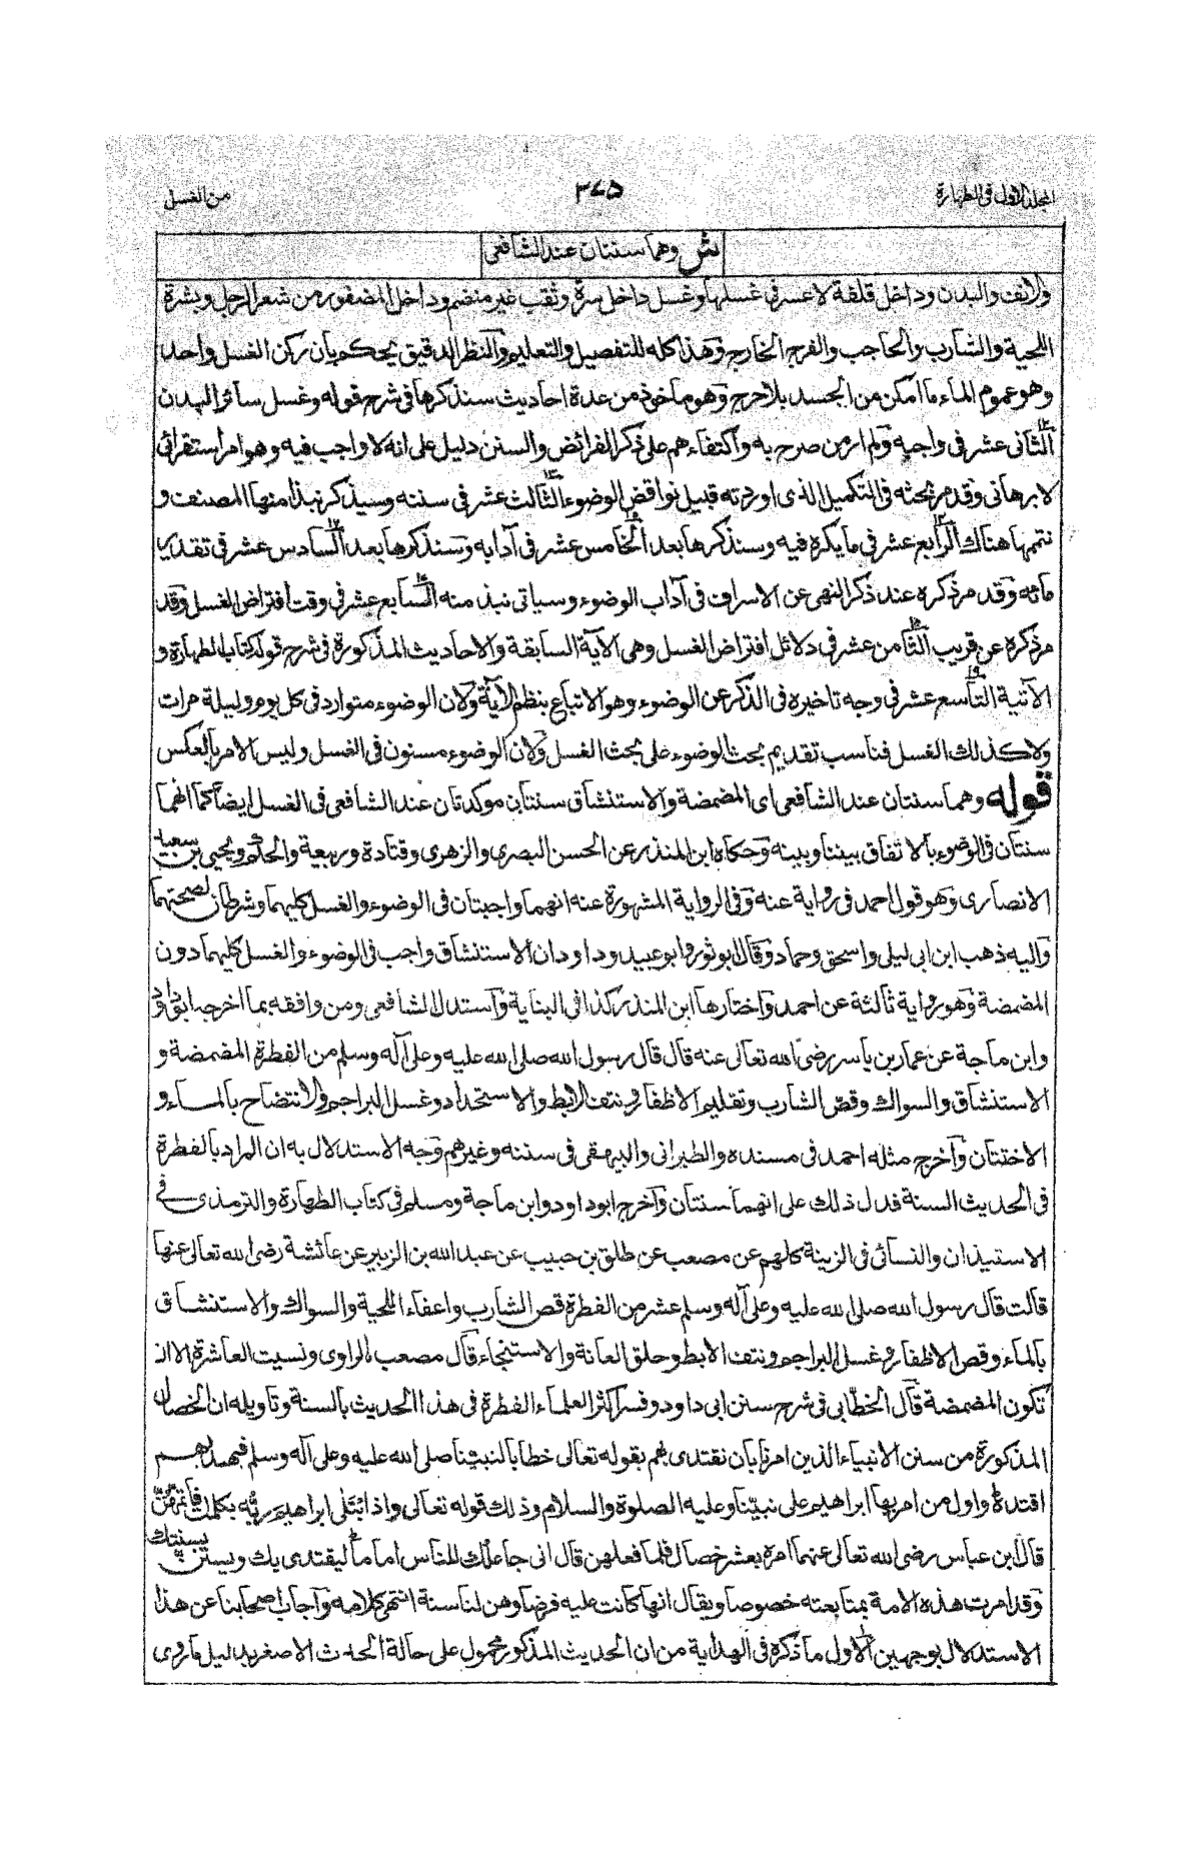 المجلد الاول فى الطهارة
٣٤٥
من الغسل
ش وهما سنتان عند الشافعى
والانف والبدن وداخل قلفة لا عسر فى غسلها وغسل داخل سرة وثقب غير منضم وداخل المضفور من شعر الرجل وبشرة
اللحية والشارب والحاجب والفرج الخارج وهذا كله للتفصيل والتعليم والنظر الدقيق يحكم بان ركن الغسل واحد
وهو عموم الماء ما امكن من الجسد بلا حرج وهو ماخوذ من عدة احاديث سنذكرها فى شرح قوله وغسل سائر البدن
الثانى عشر فى واجبه ولم ار من صرح به واكتفاءهم على ذكر الفرائض والسنن دليل على انه لا واجب فيه وهو امر استقرائى
لا برهانى وقد مر بحثه فى التكميل الذى اوردته قبيل نواقض الوضوء الثالث عشر فى سننه وسيذكر نبذا منها المصنف و
نتمها هناك الرابع عشر فى ما يكره فيه وسنذكرها بعد الخامس عشر فى آدابه وسنذكرها بعد السادس عشر فى تقدير
مائه وقد مر ذكره عند ذكر النهى عن الاسراف فى آداب الوضوء وسياتى نبذ منه السابع عشر فى وقت افتراض الغسل وقد
مر ذكره عن قريب الثامن عشر فى دلائل افتراض الغسل وهى الآية السابقة والاحاديث المذكورة فى شرح قوله كتاب الطهارة و
الآتية التاسع عشر فى وجه تاخيره فى الذكر عن الوضوء وهو الاتباع بنظم الآية ولان الوضوء متوارد فى كل يوم وليلة مرات
ولا كذلك الغسل فناسب تقديم بحث الوضوء على بحث الغسل ولان الوضوء مسنون فى الغسل وليس الامر بالعكس
قوله وهما سنتان عند الشافعى اى المضمضة والاستنشاق سنتان موكدتان عند الشافعى فى الغسل ايضا كما انهما
سنتان فى الوضوء بالاتفاق بيننا وبينه وحكاه ابن المنذر عن الحسن البصرى والزهرى وقتادة وربيعة والحكم ويحيى بن سعيد
الانصارى وهو قول احمد فى رواية عنه وفى الرواية المشهورة عنه انهما واجبتان فى الوضوء والغسل كليهما وشرطان لصحتهما
واليه ذهب ابن ابى ليلى واسحق وحماد وقال ابو ثور وابو عبيد وداود ان الاستنشاق واجب فى الوضوء والغسل كليهما دون
المضمضة وهو رواية ثالثة عن احمد واختارها ابن المنذر كذا فى البناية واستدل الشافعى ومن وافقه بما اخرجه ابو داود
وابن ماجة عن عمار بن ياسر رضى الله تعالى عنه قال قال رسول الله صلى الله عليه وعلى آله وسلم من الفطرة المضمضة و
الاستنشاق والسواك وقص الشارب وتقليم الاظفار ونتف الابط والاستحداد وغسل البراجم والانتضاح بالماء و
الاختتان وآخرج مثله احمد فى مسنده والطبرانى والبيهقى فى سننه وغيرهم وجه الاستدلال به ان المراد بالفطرة
فى الحديث السنة فدل ذلك على انهما سنتان وآخرج ابو داود وابن ماجة ومسلم فى كتاب الطهارة والترمذى فى
الاستيذان والنسائى فى الزينة كلهم عن مصعب عن طلق بن حبيب عن عبد الله بن الزبير عن عائشة رضى الله تعالى عنها
قالت قال رسول الله صلى الله عليه وعلى آله وسلم عشر من الفطرة قص الشارب واعفاء اللحية والسواك والاستنشاق
بالماء وقص الاظفار وغسل البراجم ونتف الابط وحلق العانة والاستنجاء قال مصعب الراوى ونسيت العاشرة الا ان
تكون المضمضة قال الخطابى فى شرح سنن ابى داود وفسر اكثر العلماء الفطرة فى هذا الحديث بالسنة وتاويله ان الخصال
المذكورة من سنن الانبياء الذين امرنا بان نقتدى بهم بقوله تعالى خطابا لنبينا صلى الله عليه وعلى آله وسلم فبهداهم
اقتده واول من امر بها ابراهيم على نبينا وعليه الصلوة والسلام وذلك قوله تعالى واذ ابتلى ابراهيم ربه بكلمت فاتمهن
قال ابن عباس رضى الله تعالى عنهما امره بعشر خصال فلما فعلهن قال انى جاعلك للناس اماما ليقتدى بك ويستن بسنتك
وقد امرت هذه الامة بمتابعته خصوصا ويقال انها كانت عليه فرضا وهن لنا سنة انتهى كلامه وآجاب اصحابنا عن هذا
الاستدلال بوجهين الاول ما ذكره فى الهداية من ان الحديث المذكور محمول على حالة الحدث الاصغر بدليل ما روى